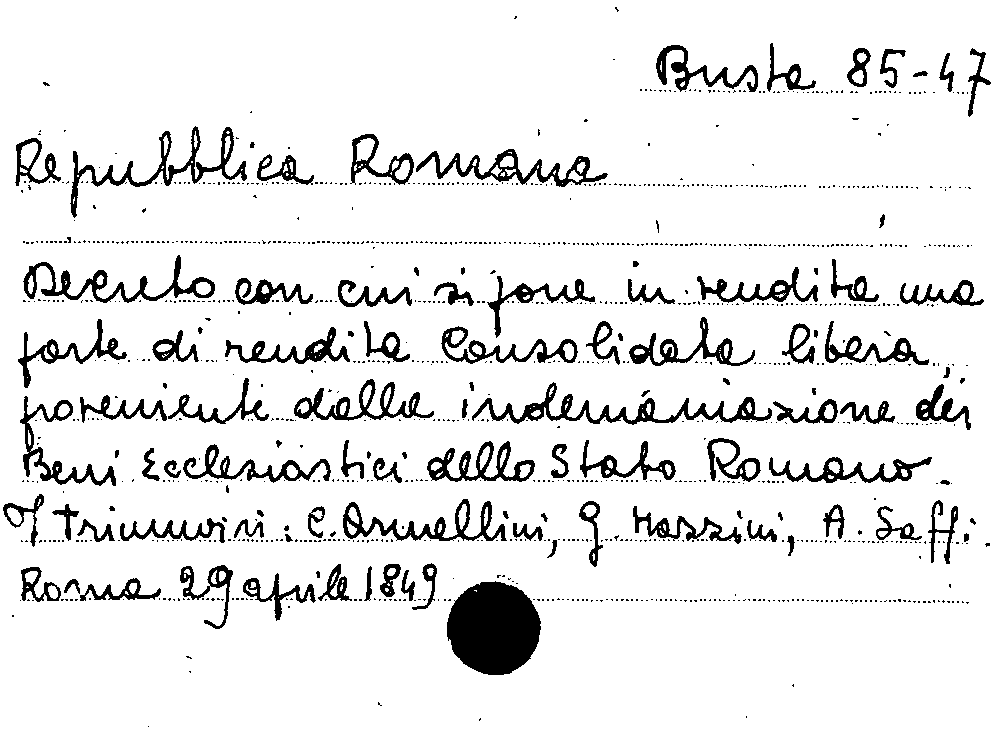 Busta 85-47
Repubblica Romana
Decreto con cui si pone in rendita una
parte di rendita Consolidata libera,
proveniente dalla indemaniazione dei
Beni Ecclesiastici dello Stato Romano.
I Triumviri: C. Armellini, G. Mazzini, A. Saffi.
Roma 29 aprile 1849